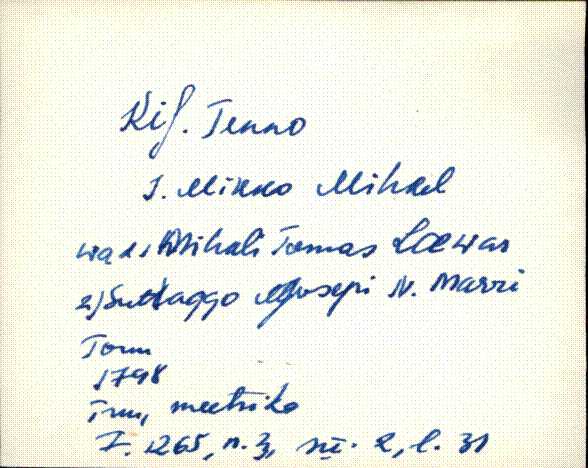 Kif. Tenno
1. Mikko Mihkel
wad. Mihali Tomas Laewar
2) Sullaggo Josepi N. Marri
Torm
1798
Trm, meetrika
F. 1265, n. 3, sü. 2, l. 31